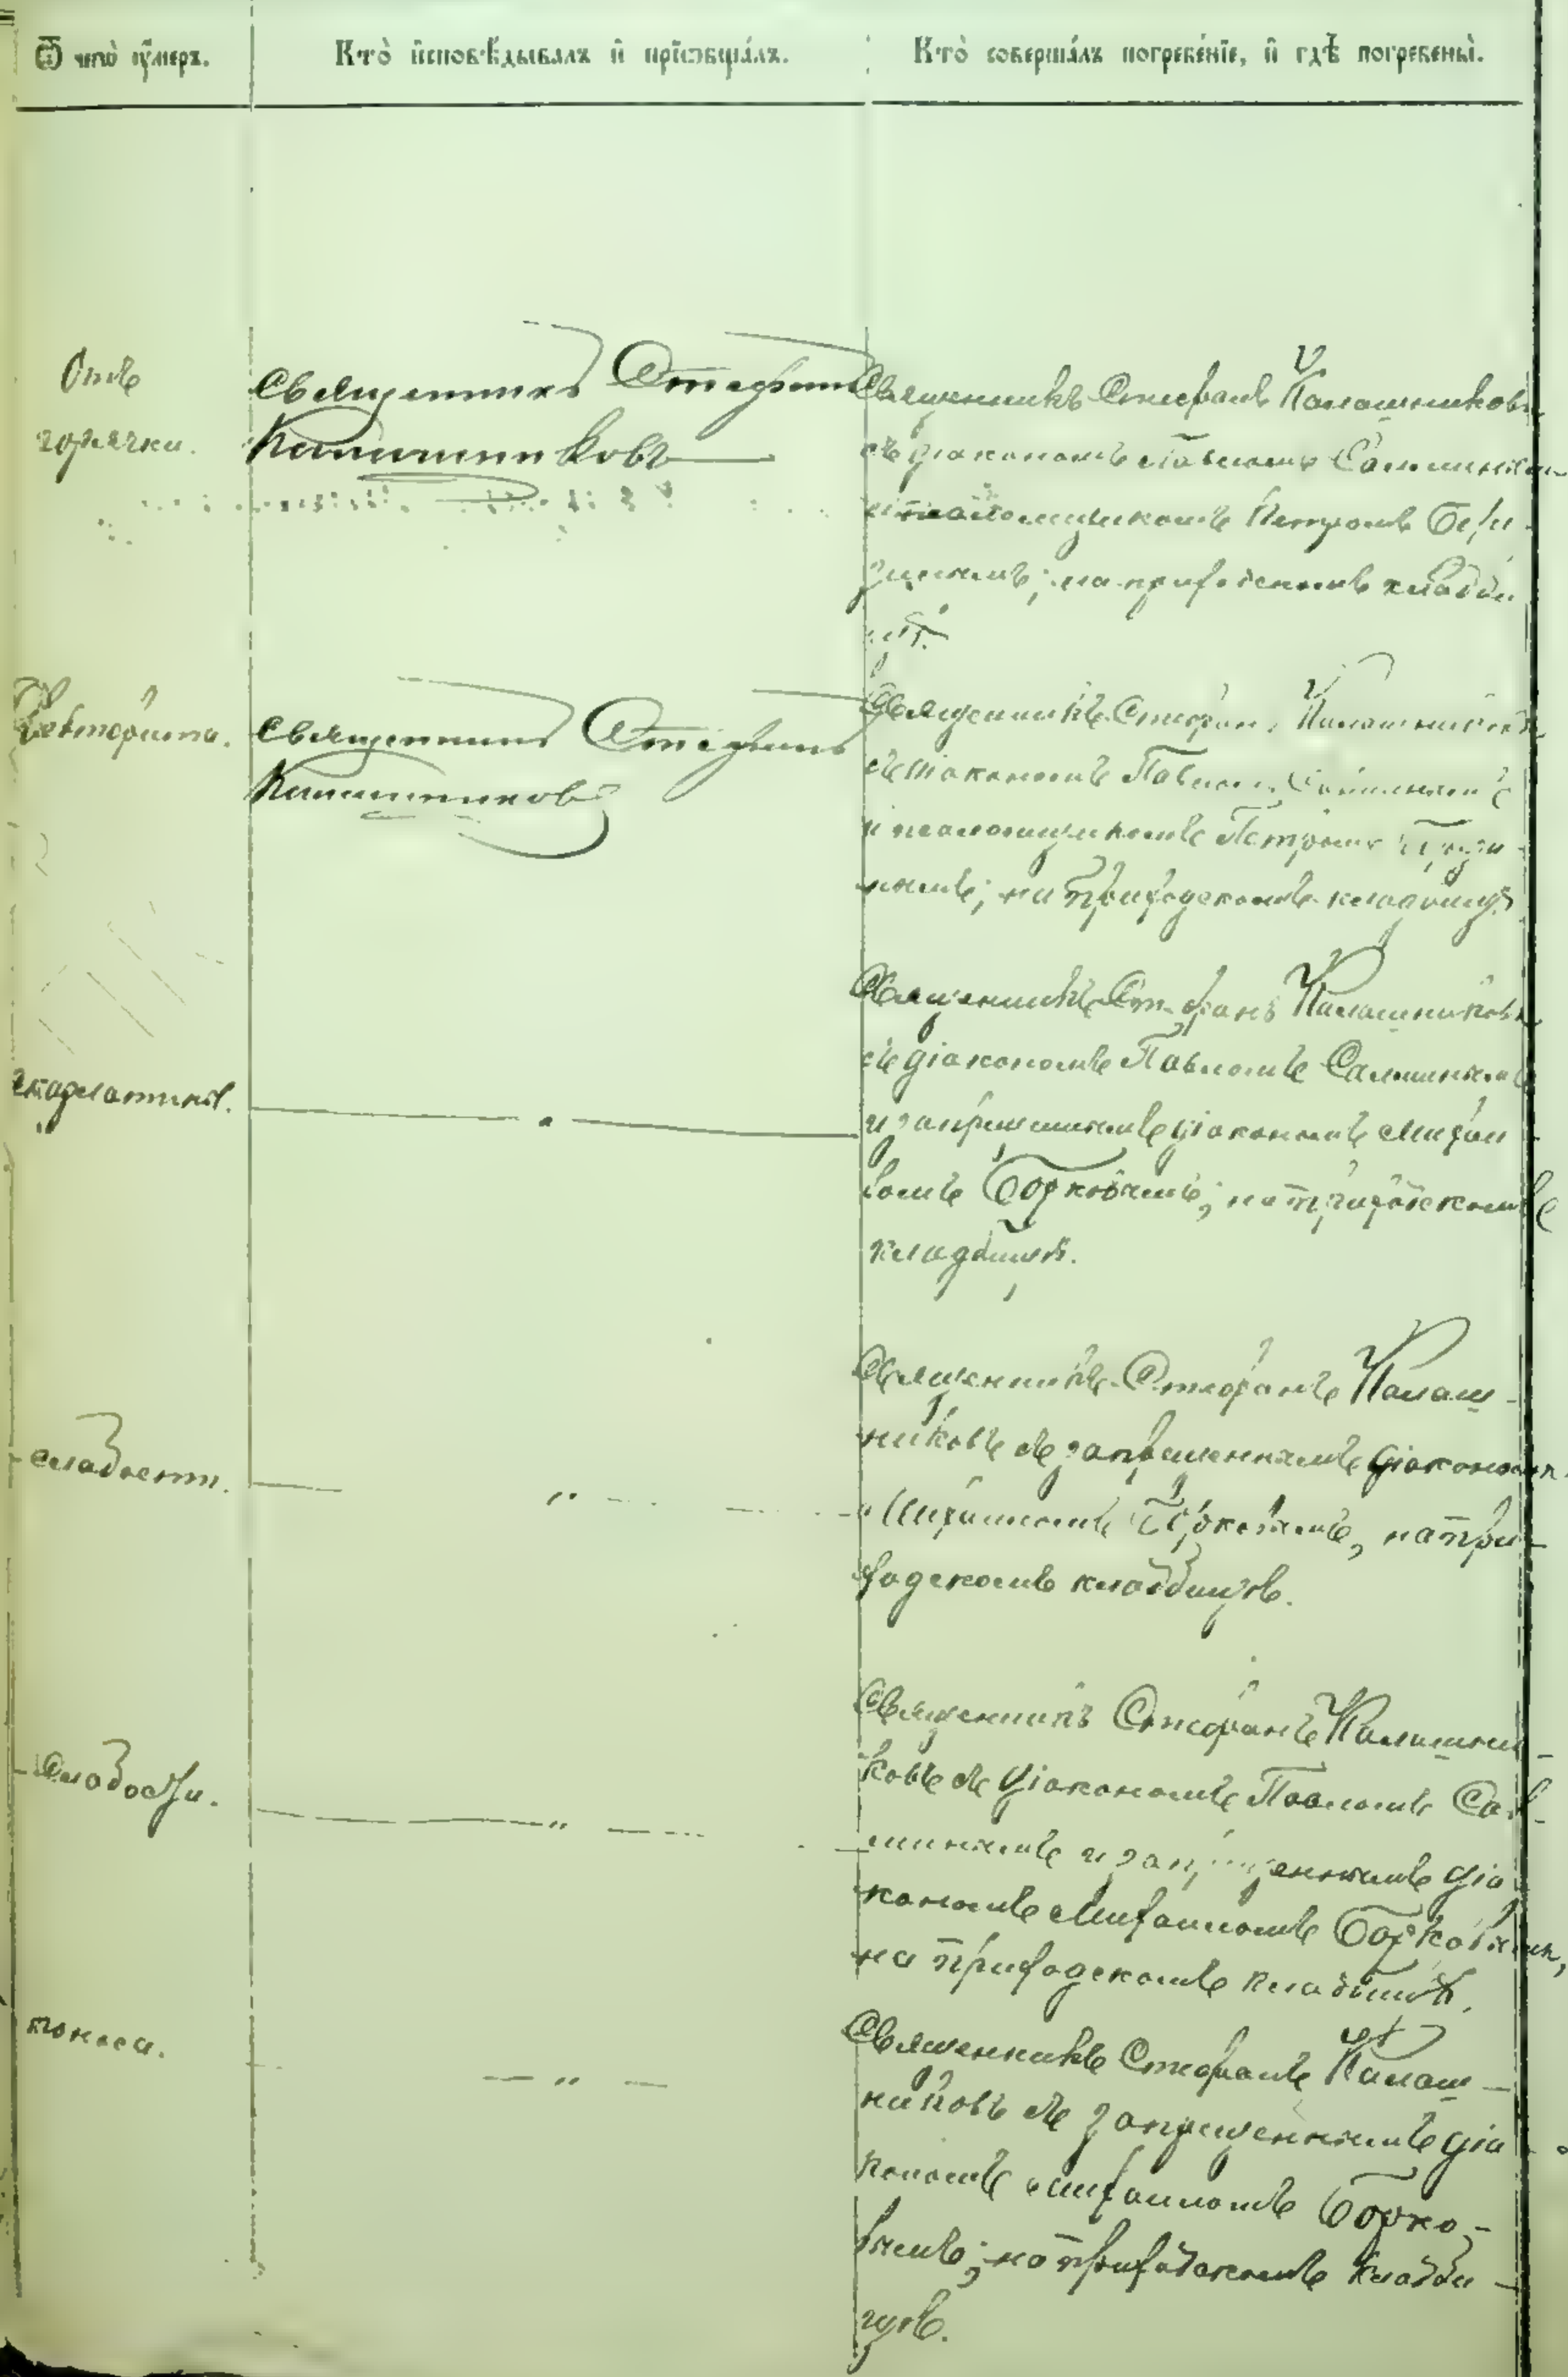 Ѿ чегѡ̀ ᲂу҆́меръ.
Кто̀ и҆сповѣ́дывалъ и҆ прїѡбща́лъ.
Кто̀ соверша́лъ погребе́нїе, и҆ гдѣ̀ погребены̀.
Отъ
горячки.
Священникъ Стефанъ
Калашниковъ
Священникъ Стефанъ Калашниковъ
съ діакономъ Павломъ
и псаломщикомъ Петромъ
на приходскомъ кладби
щѣ.
Дифтерита.
Священникъ Стефанъ
Калашниковъ
Священникъ Стефанъ Калашниковъ
съ діакономъ Павломъ
и псаломщикомъ Петромъ
на приходскомъ кладбищѣ
скарлатины.
Священникъ Стефанъ Калашниковъ
съ діакономъ Павломъ Салминымъ
и запрещеннымъ діакономъ Михаи
ломъ Борковымъ; на приходскомъ
кладбищѣ.
слабости.
Священникъ Стефанъ Калаш-
никовъ съ запрещеннымъ діакономъ
Михаиломъ Борковымъ, на при-
ходскомъ кладбищѣ.
Слабости.
Священникъ Стефанъ Калашни-
ковъ съ діакономъ Павломъ Сал-
минымъ и запрещеннымъ діа
кономъ Михаиломъ Борковымъ,
на приходскомъ кладбищѣ.
поноса.
Священникъ Стефанъ Калаш-
никовъ съ запрещеннымъ діа
кономъ Михаиломъ Борко-
вымъ; на приходскомъ кладби-
щѣ.